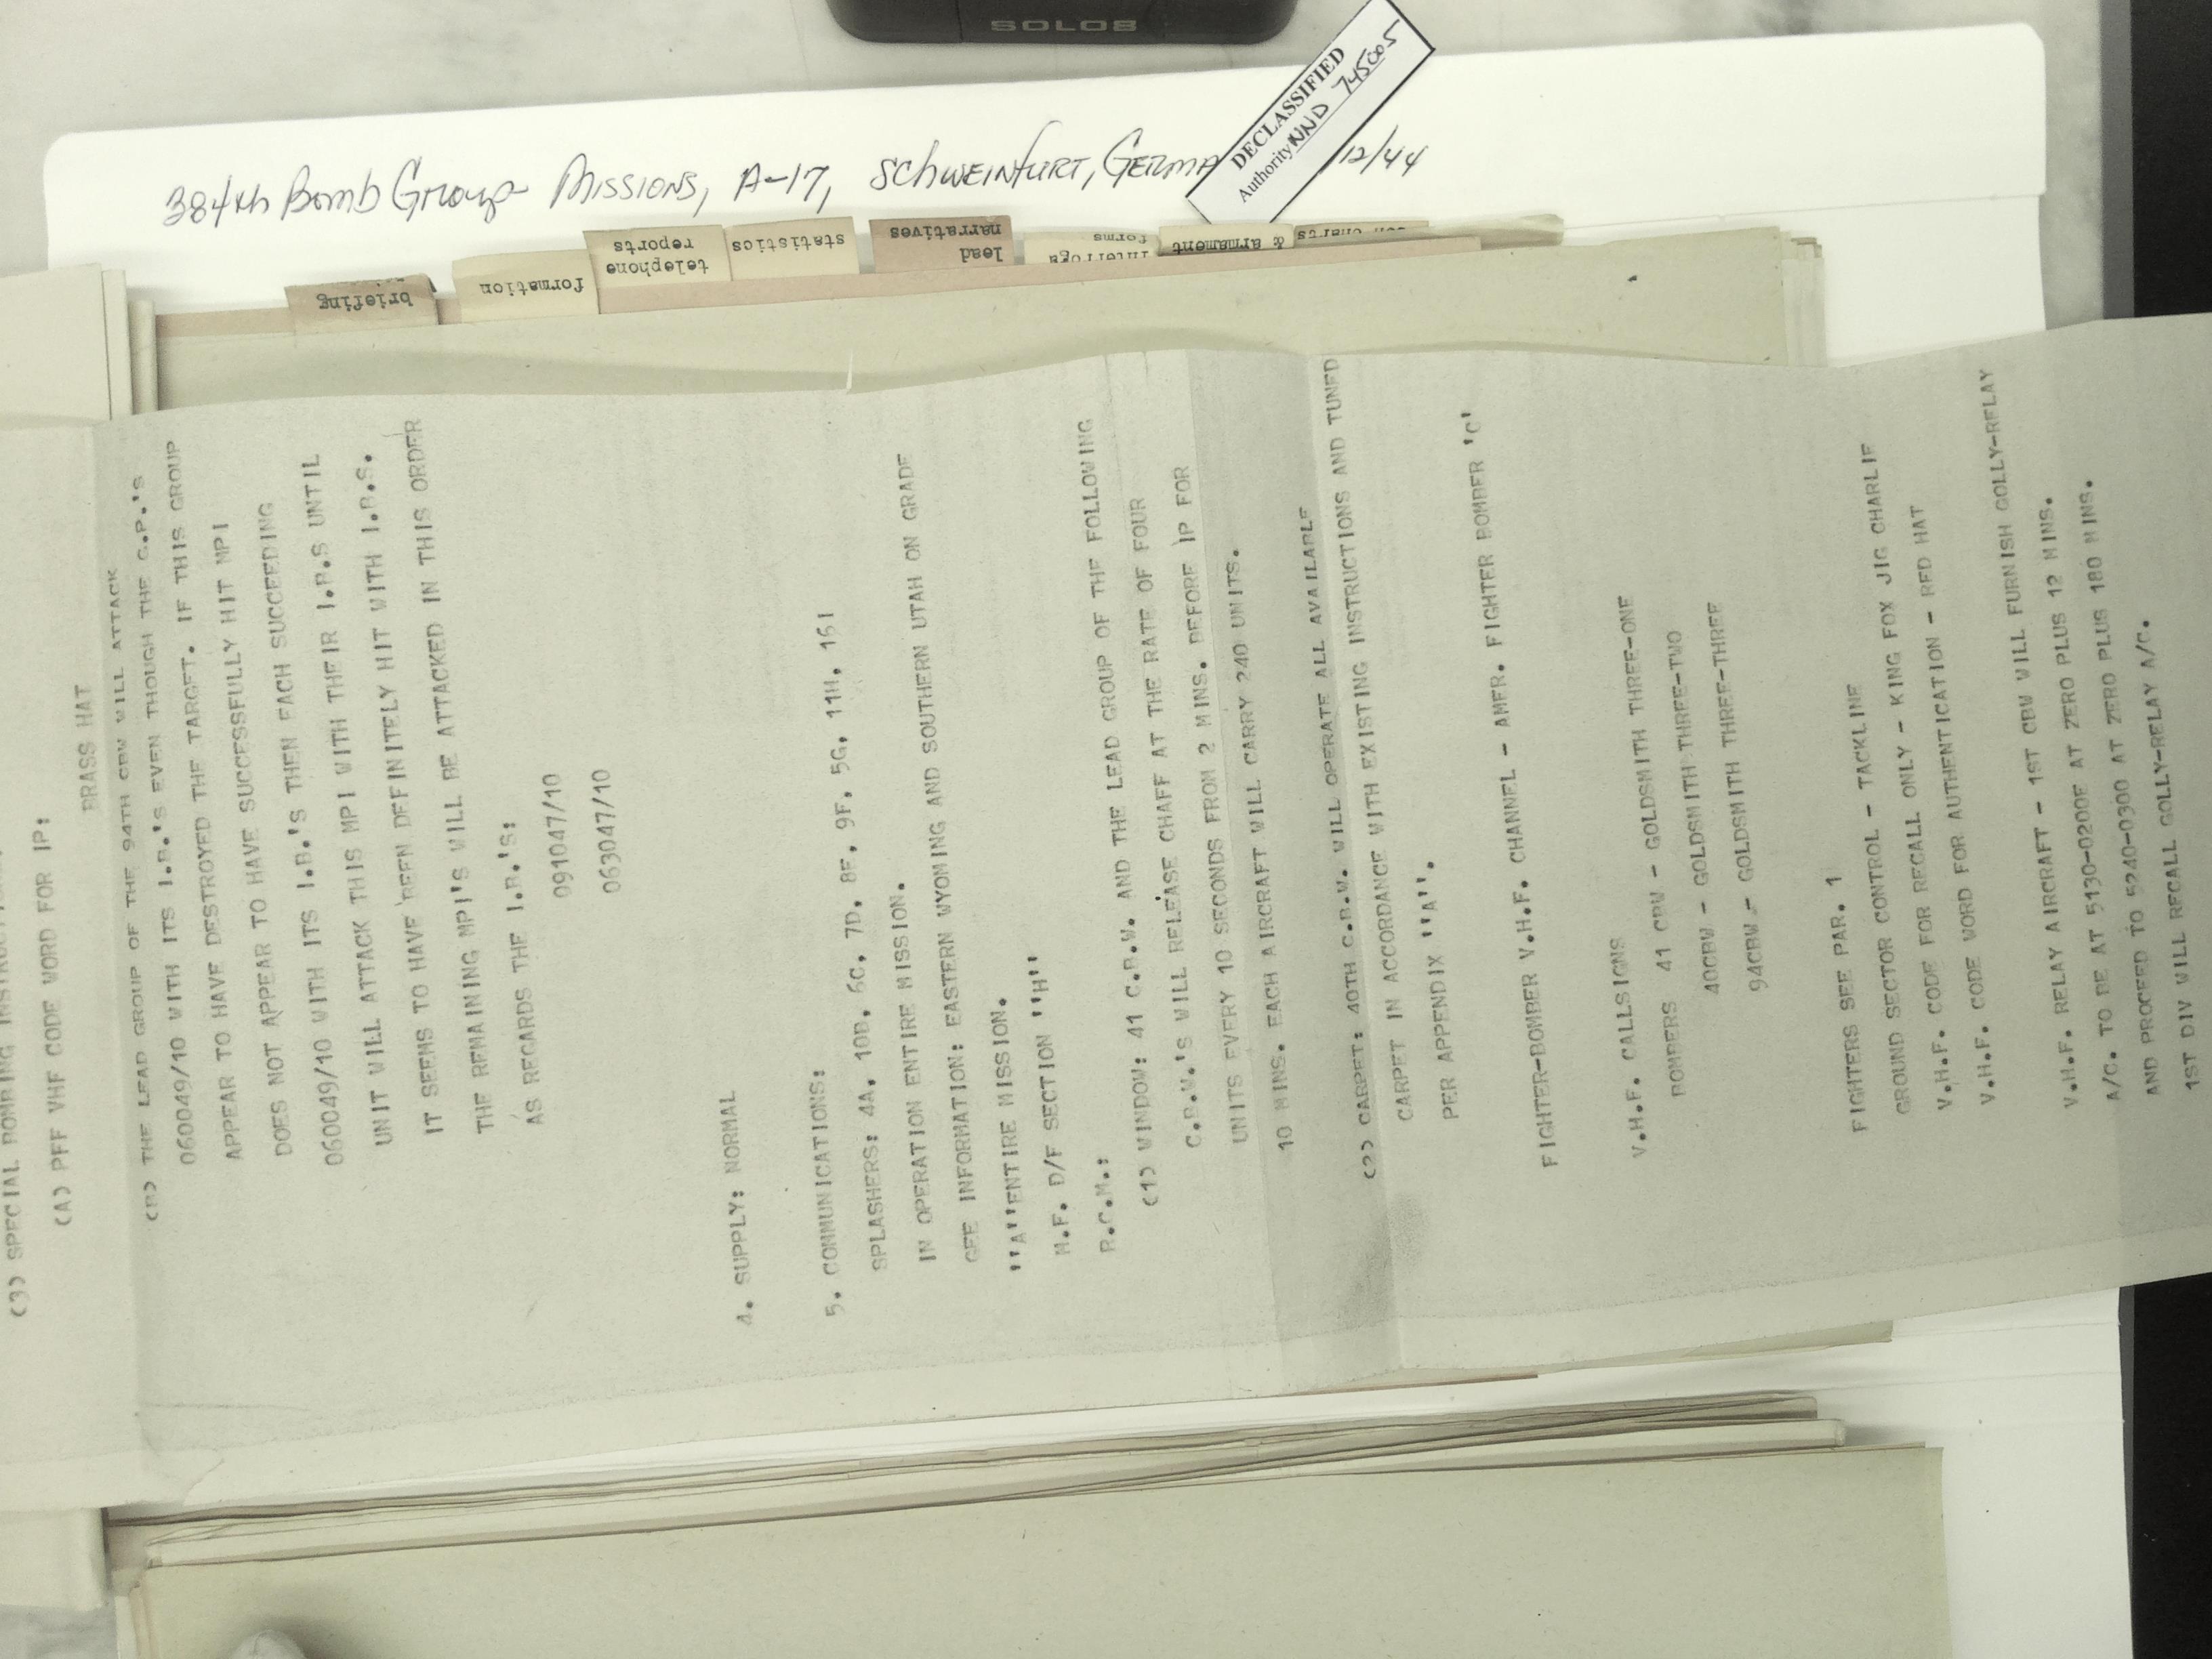 SOLO8
DECLASSIFIED
Authority NND 745005
384th Bomb Group Missions, A-17, Schweinfurt, Germa
/12/44
briefing
formation
telephone
reports
statistics
lead
narratives
Interroga
forms
& armament
charts
(3) SPECIAL BOMBING
(A) PFF VHF CODE WORD FOR IP:
BRASS HAT
(B) THE LEAD GROUP OF THE 94TH CBW WILL ATTACK
060049/10 WITH ITS I.B.'S EVEN THOUGH THE G.P.'S
APPEAR TO HAVE DESTROYED THE TARGET. IF THIS GROUP
DOES NOT APPEAR TO HAVE SUCCESSFULLY HIT MPI
060049/10 WITH ITS I.B.'S THEN EACH SUCCEEDING
UNIT WILL ATTACK THIS MPI WITH THEIR I.B.S UNTIL
IT SEEMS TO HAVE BEEN DEFINITELY HIT WITH I.B.S.
THE REMAINING MPI'S WILL BE ATTACKED IN THIS ORDER
AS REGARDS THE I.B.'S:
091047/10
063047/10
4. SUPPLY: NORMAL
5. COMMUNICATIONS:
SPLASHERS: 4A, 10D, 6C, 7D, 8F, 9F, 5G, 11H, 16I
IN OPERATION ENTIRE MISSION.
GEE INFORMATION: EASTERN WYOMING AND SOUTHERN UTAH ON GRADE
''A''ENTIRE MISSION.
M.F. D/F SECTION ''H''
R.C.M.:
(1) WINDOW: 41 C.B.W. AND THE LEAD GROUP OF THE FOLLOWING
C.B.W.'S WILL RELEASE CHAFF AT THE RATE OF FOUR
UNITS EVERY 10 SECONDS FROM 2 MINS. BEFORE IP FOR
10 MINS. EACH AIRCRAFT WILL CARRY 240 UNITS.
(2) CARPET: 40TH C.B.W. WILL OPERATE ALL AVAILABLE
CARPET IN ACCORDANCE WITH EXISTING INSTRUCTIONS AND TUNED
PER APPENDIX ''A''.
FIGHTER-BOMBER V.H.F. CHANNEL - AMFR. FIGHTER BOMBER 'C'
V.H.F. CALLSIGNS
BOMBERS 41 CBW - GOLDSMITH THREE-ONE
40CBW - GOLDSMITH THREE-TWO
94CBW - GOLDSMITH THREE-THREE
FIGHTERS SEE PAR. 1
GROUND SECTOR CONTROL - TACKLINE
V.H.F. CODE FOR RECALL ONLY - KING FOX JIG CHARLIE
V.H.F. CODE WORD FOR AUTHENTICATION - RED HAT
V.H.F. RELAY AIRCRAFT - 1ST CBW WILL FURNISH GOLLY-RELAY
A/C. TO BE AT 5130-0200E AT ZERO PLUS 12 MINS.
AND PROCEED TO 5240-0300 AT ZERO PLUS 180 MINS.
1ST DIV WILL RECALL GOLLY-RELAY A/C.